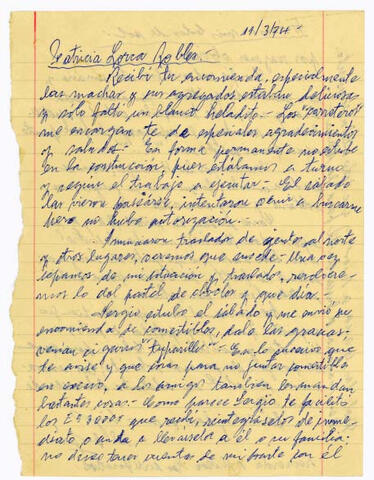 19/3/74-
Patricia Lorca Robles.
Recibí tu encomienda, especialmente
las machas y sus agregados estaban deliciosas
y sólo faltó un blanco helado.- Los "carreteros"
me encargan te de especiales agradecimientos
y saludos.- En forma permanente no estube
en la construcción, pues estábamos a turno
y según el trabajo a ejecutar.- El sábado
las vieron pasear, intentaron venir a buscarme
pero no hubo autorización.-
Anunciaron traslados de gente al norte
y otros lugares, veremos que sucede. Una vez
sepamos de mi situación y traslados, resolvere-
mos lo del pastel de choclos y que día.
Sergio estubo el sábado y me envió su
encomienda de comestibles, dale las gracias
venían "
En lo sucesivo que
te avise y que cosas para no juntar comestible
en exceso, a los amigos tambien les mandan
bastantes cosas.- Como parece Sergio te facilitó
los Eº 30000 que recibí, reintegráselos de inme-
diato o anda a llevarselos a él o su familia;
no deseo tener cuentas de mi parte con él